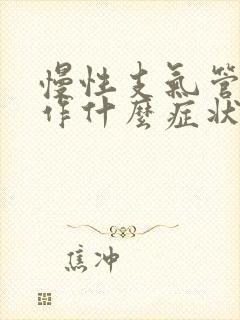 慢性支氣管
作什麼症狀
焦冲